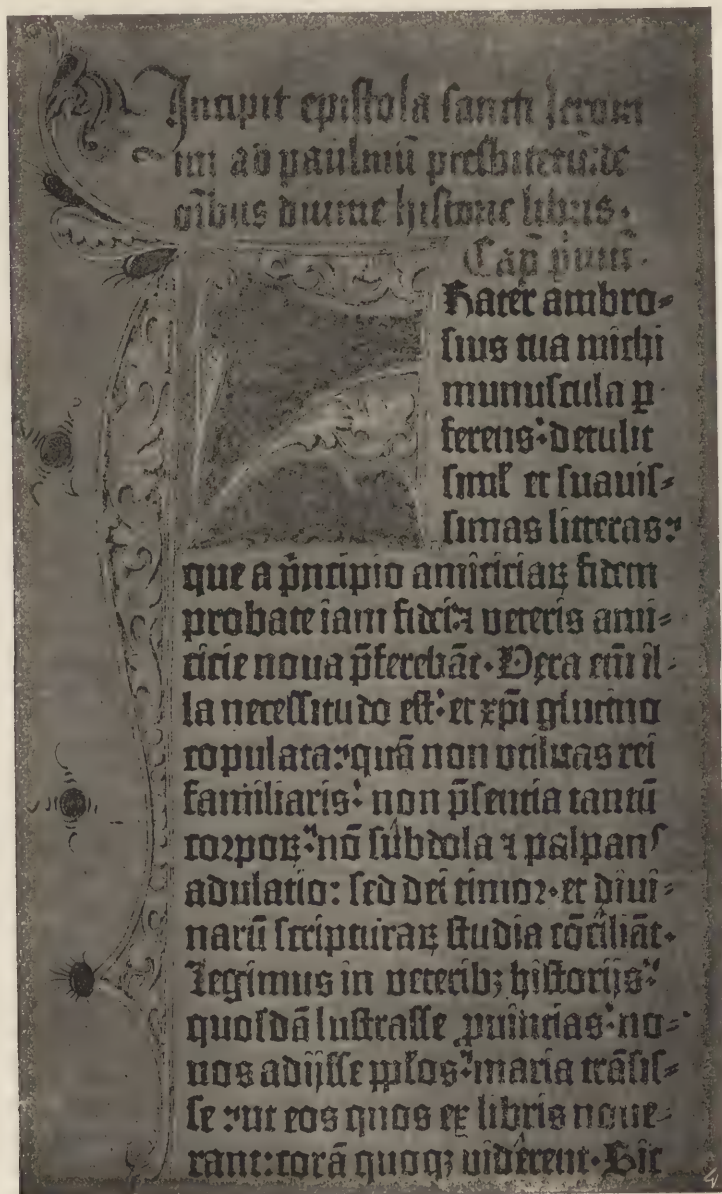 Incipit epistola sancti Ieroni
mi ad paulinū presbiterū: de
om̄ibus diuine historie libris.
Cap̄ p̄mū.
Frater ambro⸗
sius tua michi
munuscula ꝑ⸗
ferens· detulit
siml̄ et suauis⸗
simas litteras:
que a p̄ncipio amiciciaꝝ fidem
probate iam fidei ⁊ veteris ami⸗
cicie noua p̄ferebāt. Vera em̄ il⸗
la necessitudo est· et xp̄i glutino
copulata: quā non vtilitas rei
familiaris· non p̄sentia tantū
corpoꝝ· nō subdola ⁊ palpans
adulatio: sed dei timor· et diui⸗
narū scripturaꝝ studia cōciliāt.
Legimus in veterib; historijs·
quosdā lustrasse ꝓuincias· no⸗
uos adijsse pp̄los· maria trāsis⸗
se: ut eos quos ex libris noue⸗
rant: corā quoq; viderent. Sic